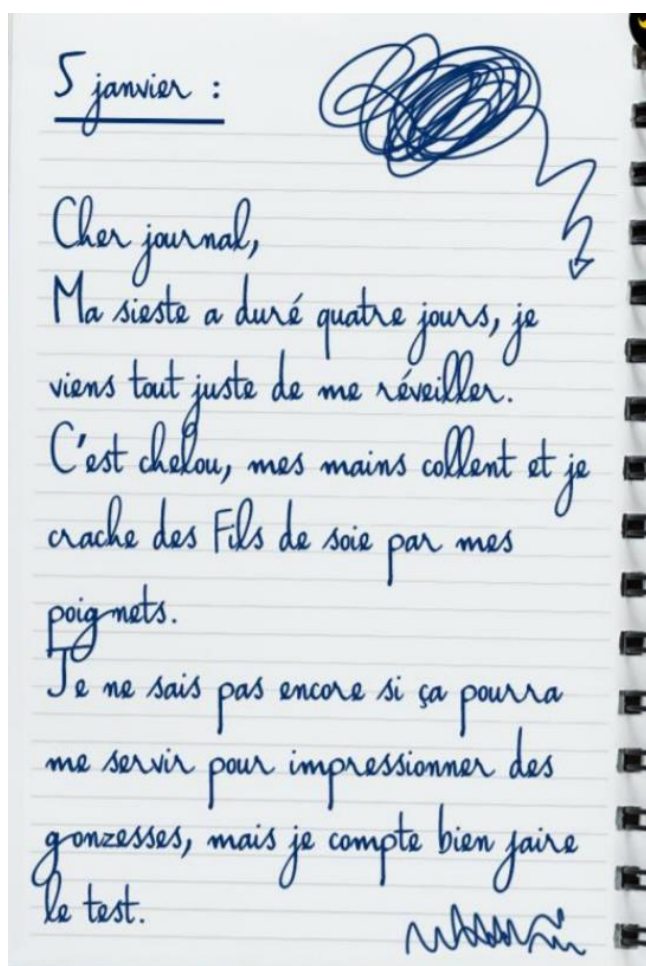 5 janvier :
Cher journal,
Ma sieste a duré quatre jours, je
viens tout juste de me réveiller.
C'est chelou, mes mains collent et je
crache des Fils de soie par mes
poignets.
Je ne sais pas encore si ça pourra
me servir pour impressionner des
gonzesses, mais je compte bien faire
le test.